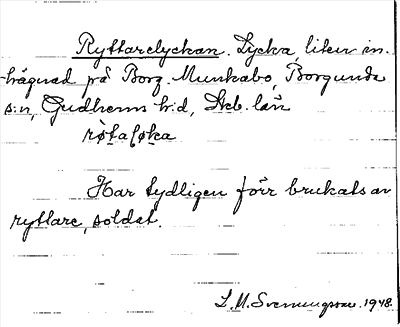 Ryttarelyckan. Lycka, liten in-
hägnad på Borg. Munkabo, Borgunda
s:n, Gudhems h:d, Skb. län
Har tydligen förr brukats av
ryttare, soldat.
L. M. Svenungsson. 1948.